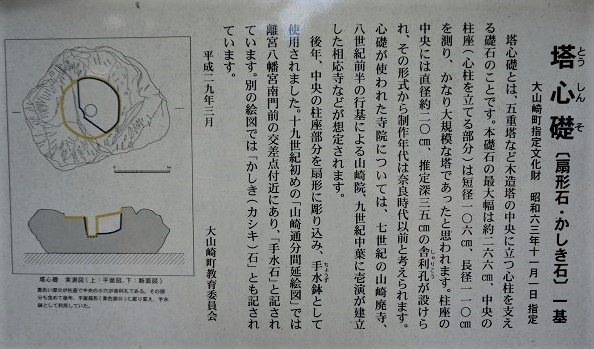 塔心礎〔扇形石・かしき石〕一基
とう しん そ
大山崎町指定文化財 昭和六三年十一月一日 指定
塔心礎とは、五重塔など木造塔の中央に立つ心柱を支え
る礎石のことです。本礎石の最大幅は約二六六㎝、中央の
柱座（心柱を立てる部分）は短径一〇六㎝、長径一一〇㎝
を測り、かなり大規模な塔であったと思われます。柱座の
中央には直径約二〇㎝、推定深三五㎝の舎利孔が設けら
れ、その形式から制作年代は奈良時代以前と考えられます。
心礎が使われた寺院については、七世紀の山崎廃寺、
八世紀前半の行基による山崎院、九世紀中葉に壱演が建立
した相応寺などが想定されます。
後年、中央の柱座部分を扇形に彫り込み、手水鉢として
ちょうず
使用されました。十九世紀初めの「山崎通分間延絵図」では
離宮八幡宮南門前の交差点付近にあり、「手水石」と記され
ています。別の絵図では「かしき（カシキ）石」とも記され
ています。
平成二九年三月
大山崎町教育委員会
塔心礎 実測図（上：平面図、下：断面図）